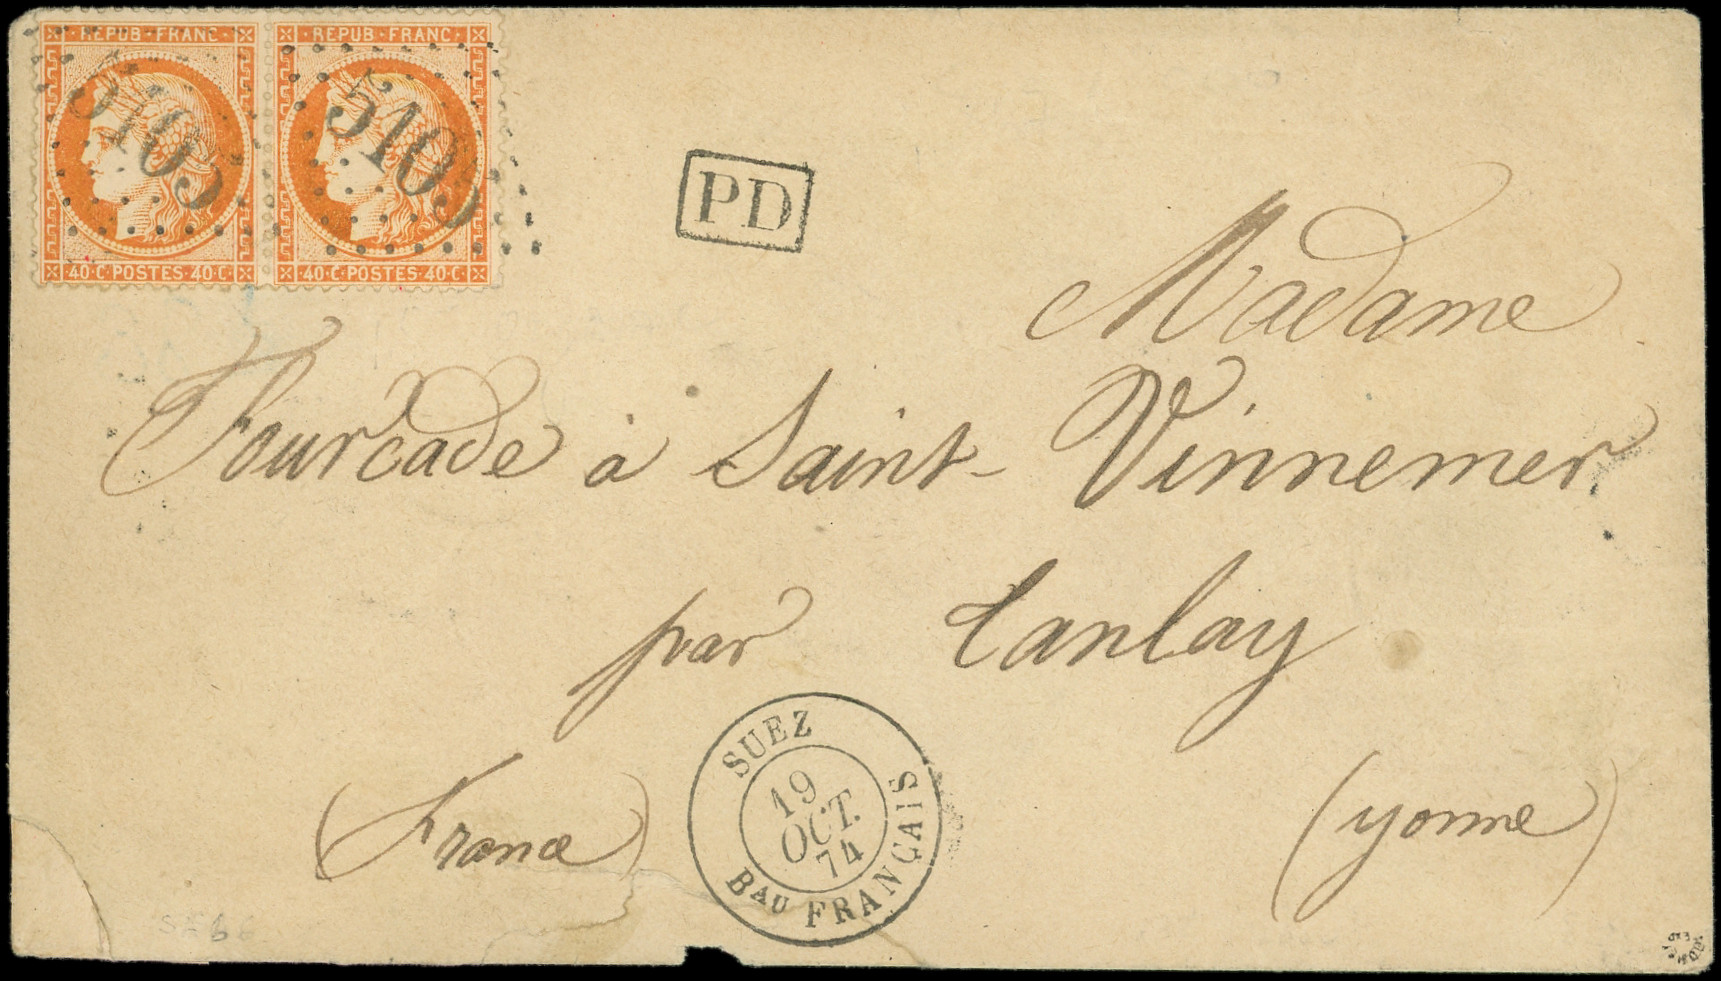 REPUB·FRANC· REPUB·FRANC·
5105 5105
40·C·POSTES·40·C· 40·C·POSTES·40·C·
PD
Madame
Fourcade à Saint-Vinnemer
par Tanlay
(France) (yonne)
SUEZ
19
OCT.
74
BAU FRANÇAIS